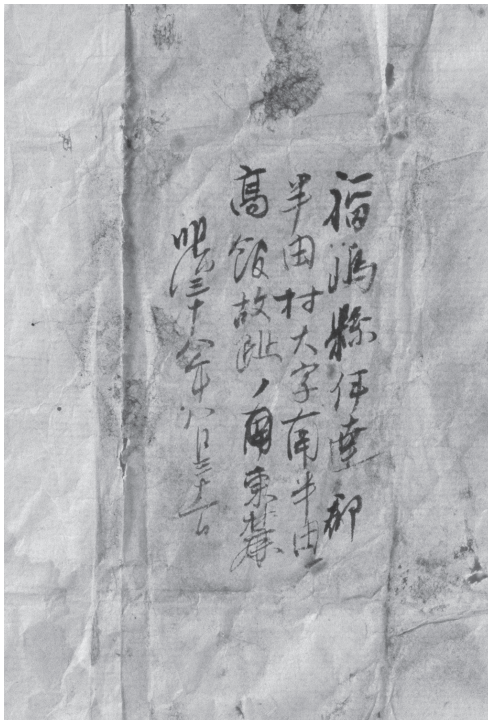 福嶋縣伊達郡
半田村大字南半田
高館故趾ノ南東麓
明治三十八年八月三十一日